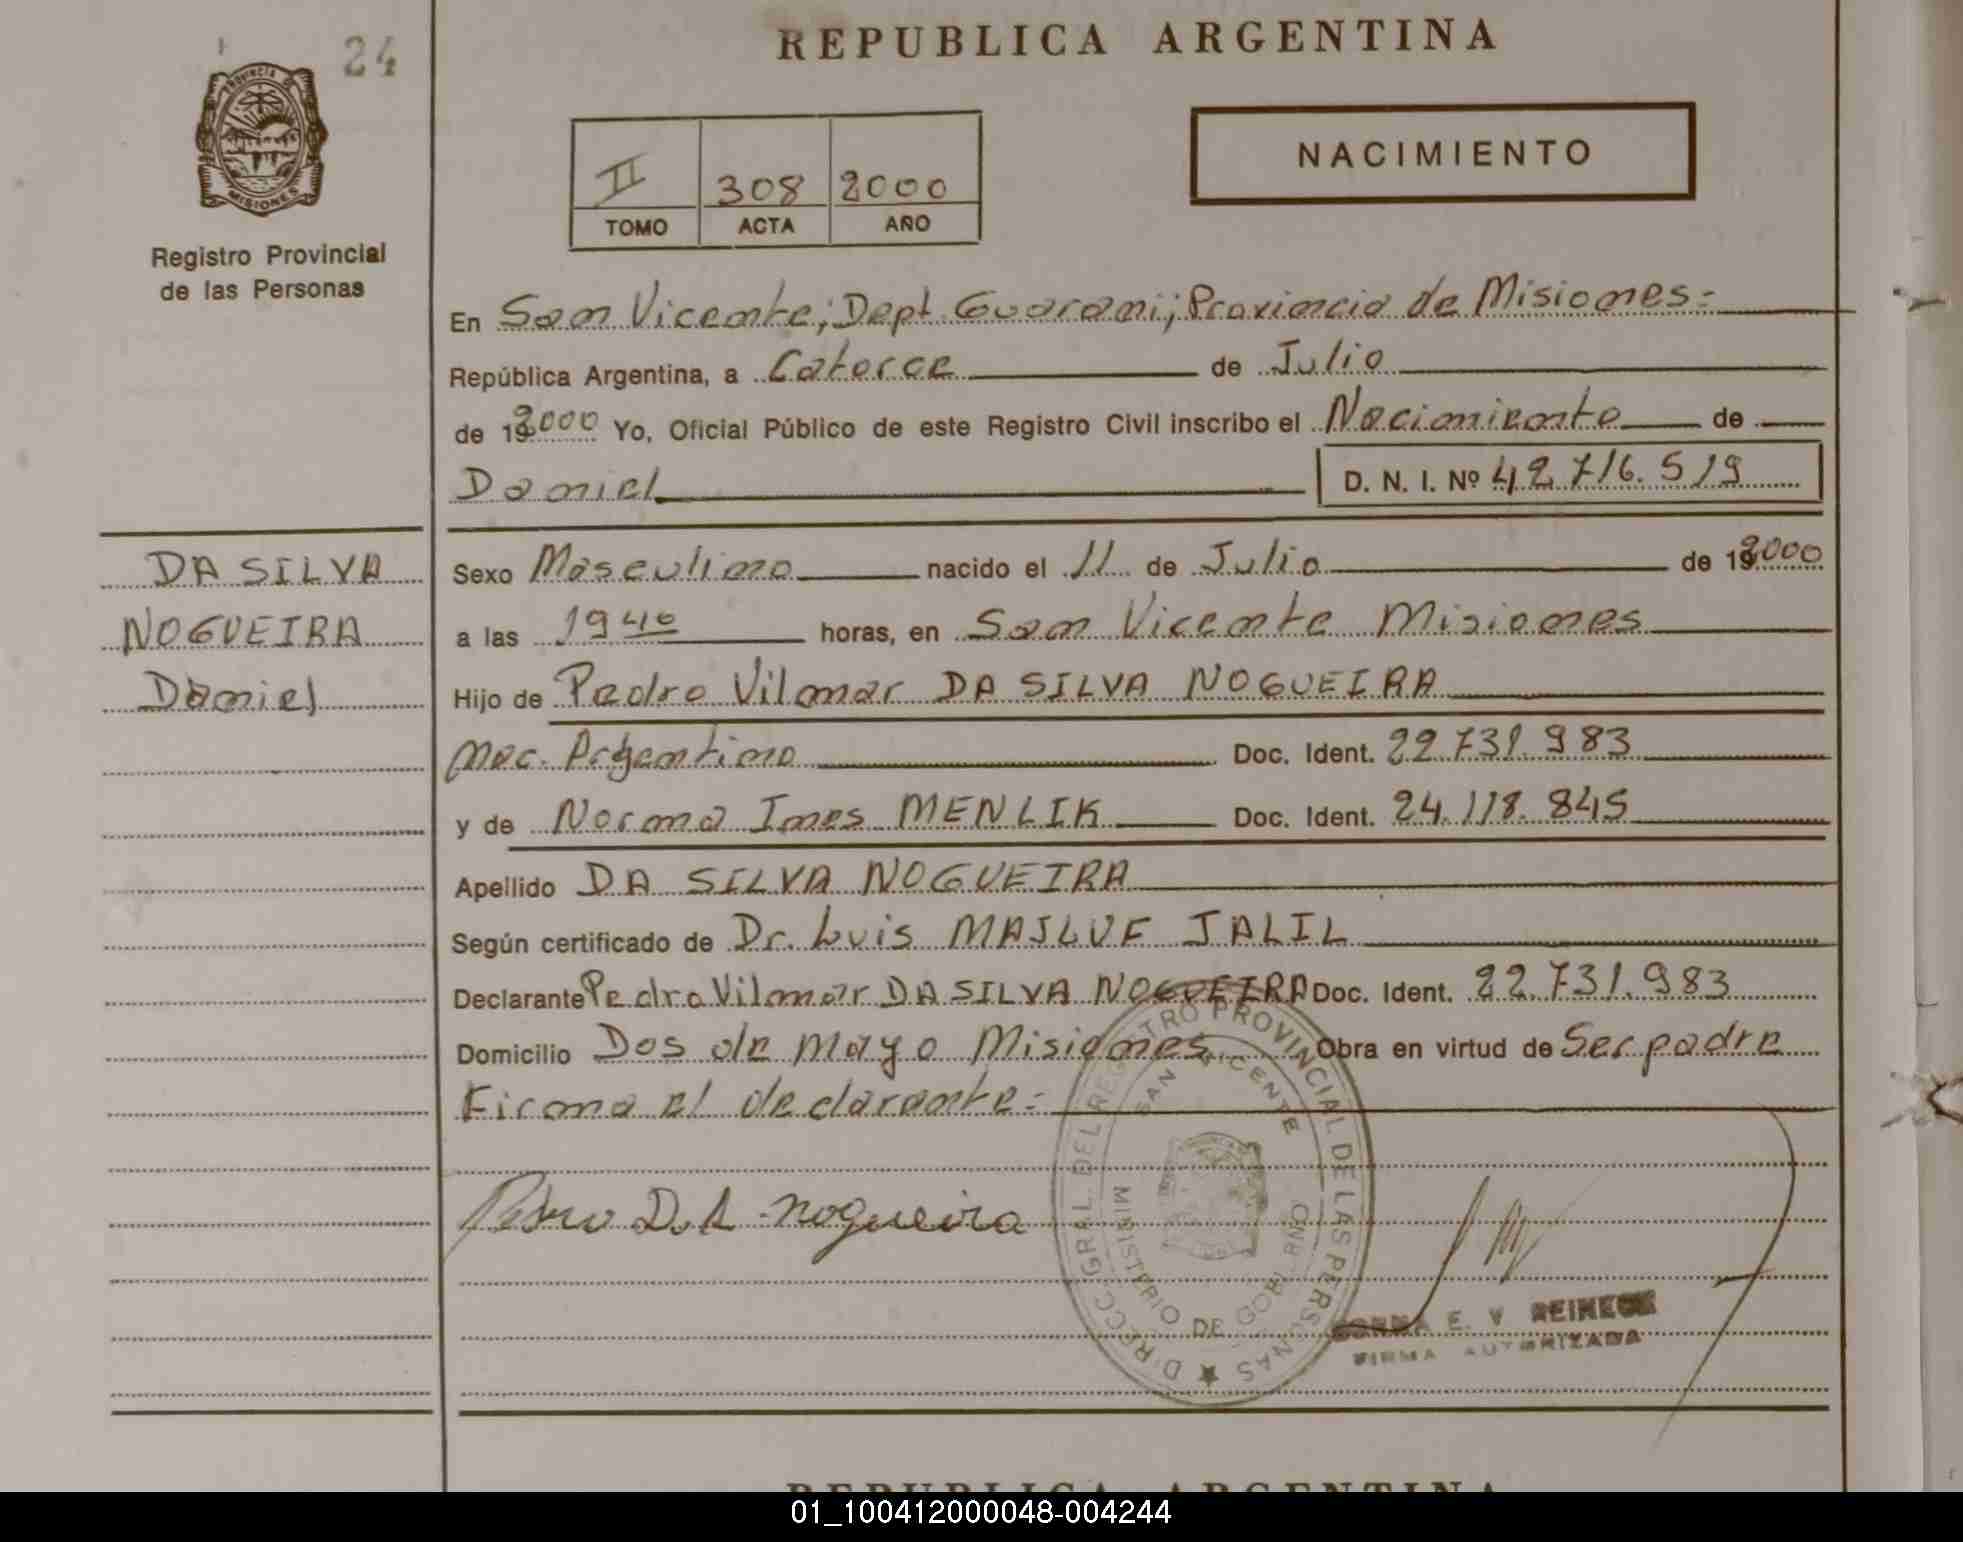 24
REPUBLICA ARGENTINA
PROVINCIA DE
MISIONES
Registro Provincial
de las Personas
II 308 2000
TOMO ACTA AÑO
NACIMIENTO
En San Vicente; Dept. Guarani; Provincia de Misiones=
República Argentina, a Catorce de Julio
de 2000 Yo, Oficial Público de este Registro Civil inscribo el Nacimiento de
Daniel D. N. I. Nº 42.716.519
DA SILVA
NOGUEIRA
Daniel
Sexo Masculino nacido el 11 de Julio de 2000
a las 19 40 horas, en San Vicente Misiones
Hijo de Pedro Vilmar DA SILVA NOGUEIRA
Nac. Argentino Doc. Ident. 22.731.983
y de Norma Ines MENLIK Doc. Ident. 24.118.845
Apellido DA SILVA NOGUEIRA
Según certificado de Dr. Luis MAJLUF JALIL
Declarante Pedro Vilmar DA SILVA NOGUEIRA Doc. Ident. 22.731.983
Domicilio Dos de Mayo Misiones Obra en virtud de Ser padre
Firma el declarante=
Pedro D.A. Nogueira
DIRECC GRAL. DEL REGISTRO PROVINCIAL DE LAS PERSONAS
SAN VICENTE
MINISTERIO DE GOBIERNO
E. V REINECK
FIRMA AUTORIZADA
REPUBLICA ARGENTINA
01_100412000048-004244